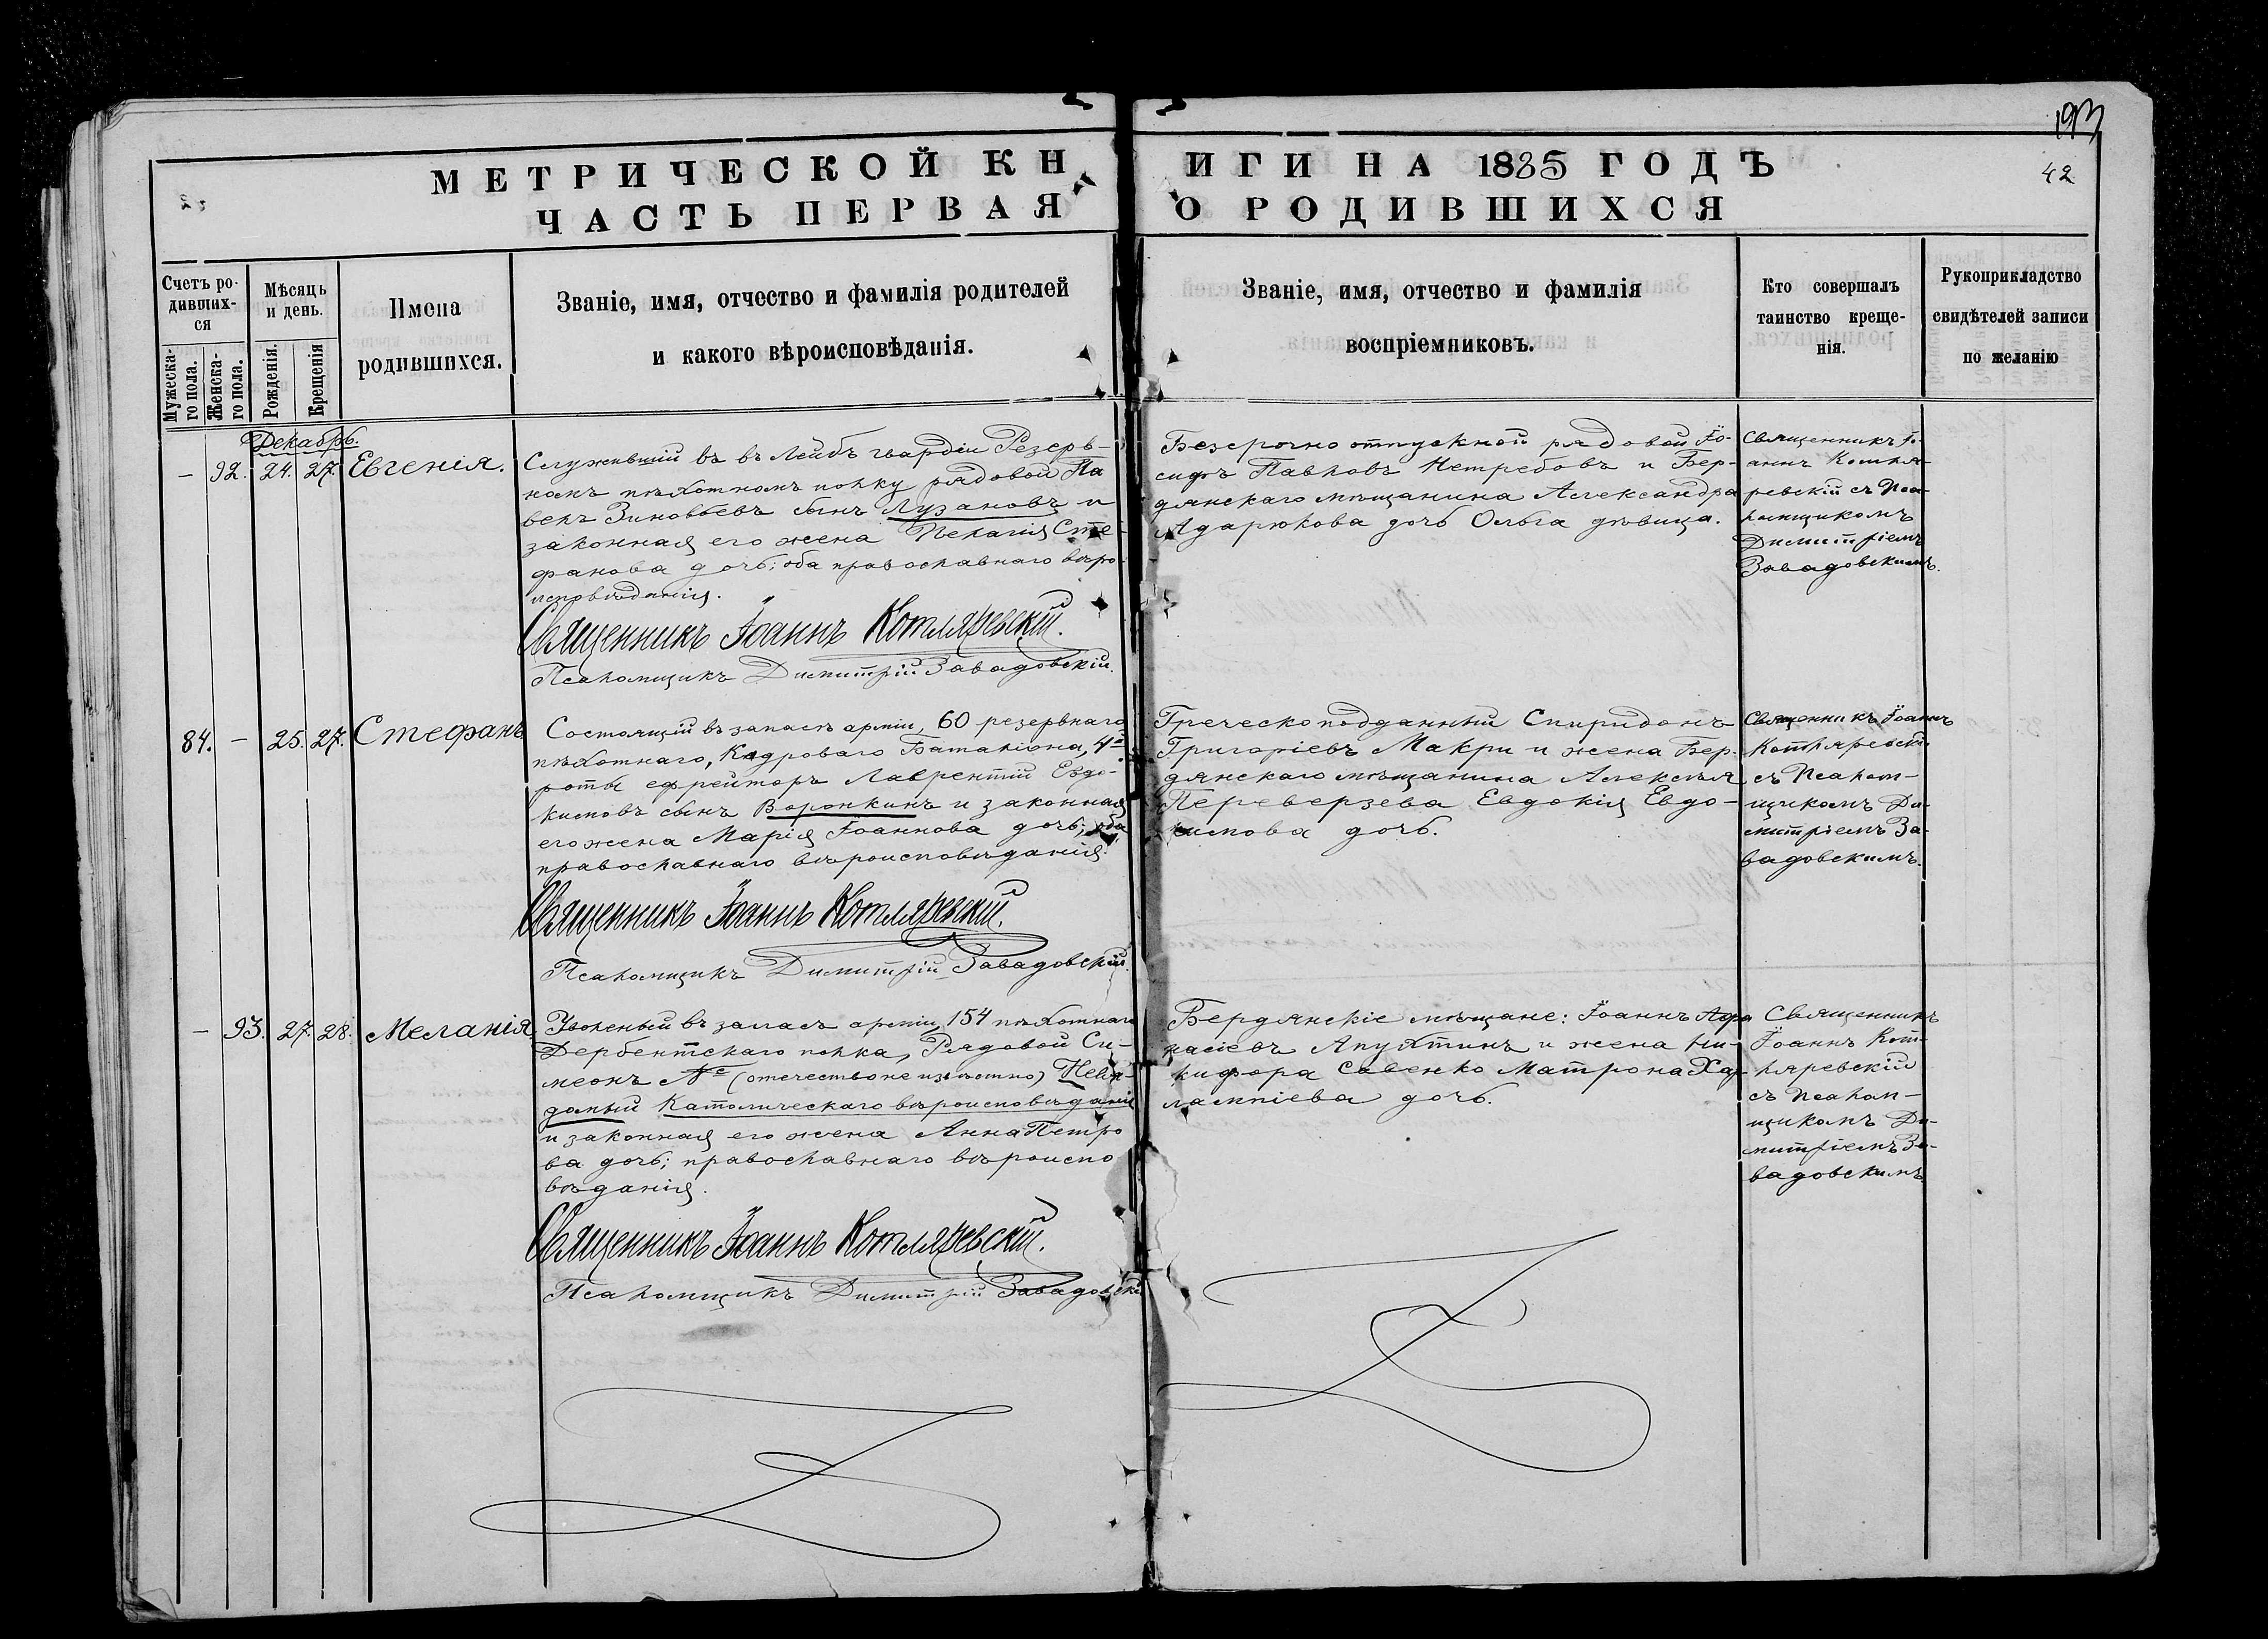 193
42
МЕТРИЧЕСКОЙ КНИГИ НА 1885 ГОДЪ
ЧАСТЬ ПЕРВАЯ О РОДИВШИХСЯ
Счетъ ро-
дивших-
ся
Мужеска-
го пола.
Женска-
го пола.
Мѣсяцъ
и день.
Рожденія.
Крещенія
Имена
родившихся.
Званіе, имя, отчество и фамилія родителей
и какого вѣроисповѣданія.
Званіе, имя, отчество и фамилія
воспріемниковъ.
Кто совершалъ
таинство креще-
нія.
Рукоприкладство
свидѣтелей записи
по желанію
Декабрь.
— 92. 24. 27. Евгенія.
Служившій въ въ Лейбъ гвардіи Резерв-
номъ пѣхотномъ полку рядовой Па
велъ Зиновьевъ сынъ Лузановъ и
законная его жена Пелагія Сте-
фанова дочь; оба православнаго вѣро-
исповѣданія.
Священникъ Іоаннъ Котляревскій.
Псаломщикъ Димитрій Завадовскій.
Безсрочно отпускной рядовой Іо-
сифъ Павловъ Нетребовъ и Бер-
дянскаго мѣщанина Александра
Адарюкова дочь Ольга дѣвица.
Священникъ Іо-
аннъ Котля-
ревскій съ Пса-
ломщикомъ
Димитріемъ
Завадовскимъ.
84. — 25. 27. Стефанъ
Состоящій въ запасѣ арміи, 60 резервнаго
пѣхотнаго, Кадроваго Баталіона, 4й
роты ефрейторъ Лаврентій Евдо-
кимовъ сынъ Воронкинъ и законная
его жена Марія Іоаннова дочь; оба
православнаго вѣроисповѣданія.
Священникъ Іоаннъ Котляревскій.
Псаломщикъ Димитрій Завадовскій.
Греческоподданный Спиридонъ
Григоріевъ Макри и жена Бер-
дянскаго мѣщанина Алексѣя
Переверзева Евдокія Евдо-
кимова дочь.
Священникъ Іоаннъ
Котляревскій
съ Псалом-
щикомъ Ди-
митріемъ За-
вадовскимъ.
— 93. 27. 28. Меланія.
Уволеный въ запасъ арміи, 154 пѣхотнаго
Дербентскаго полка, Рядовой Си-
меонъ №(отечество не извѣстно)
Католическаго вѣроисповѣданія
и законная его жена Анна Петро
ва дочь; православнаго вѣроиспо
вѣданія.
Священникъ Іоаннъ Котляревскій.
Псаломщикъ Димитрій Завадовскій
Бердянскіе мѣщане: Іоаннъ Афа
насіевъ Апухтинъ и жена Ни-
кифора Савенко Матрона Хар-
лампіева дочь.
Священникъ
Іоаннъ Кот-
ляревскій
съ Псалом-
щикомъ Ди-
митріемъ За-
вадовскимъ